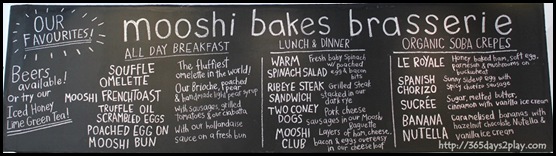 OUR
FAVOURITES!
Beers
available!
or try our
Iced Honey
Lime Green Tea!
mooshi bakes brasserie
ALL DAY BREAKFAST
SOUFFLE
OMELETTE
The fluffiest
omelette in the world!
MOOSHI FRENCHTOAST
Our Brioche, 1 pear poached
& handmade light pear syrup
TRUFFLE OIL
SCRAMBLED EGGS
with sausages, grilled
tomatoes & our ciabatta
POACHED EGG ON
MOOSHI BUN
With our hollandaise
sauce on a fresh bun
LUNCH & DINNER
WARM
SPINACH SALAD
Fresh baby Spinach
w/ poached
egg & bacon
bits
RIBEYE STEAK
SANDWICH
Grilled Steak
stacked in our
dark rye
TWO CONEY
DOGS
Pork cheese
sausages in our Mooshi
Baguette
MOOSHI
CLUB
Layers of ham, cheese,
bacon & eggs overeasy
in our cheese loaf
ORGANIC SOBA CREPES
LE ROYALE
Honey baked ham, soft egg,
parmesan & mushrooms on
buckwheat
SPANISH
CHORIZO
Sunny sided egg with
spicy chorizo sausages
SUCRÉE
Sugar, melted butter,
cinnamon with vanilla ice cream
BANANA
NUTELLA
caramelised bananas with
hazelnut chocolate Nutella &
vanilla ice cream
http://365days2play.com/